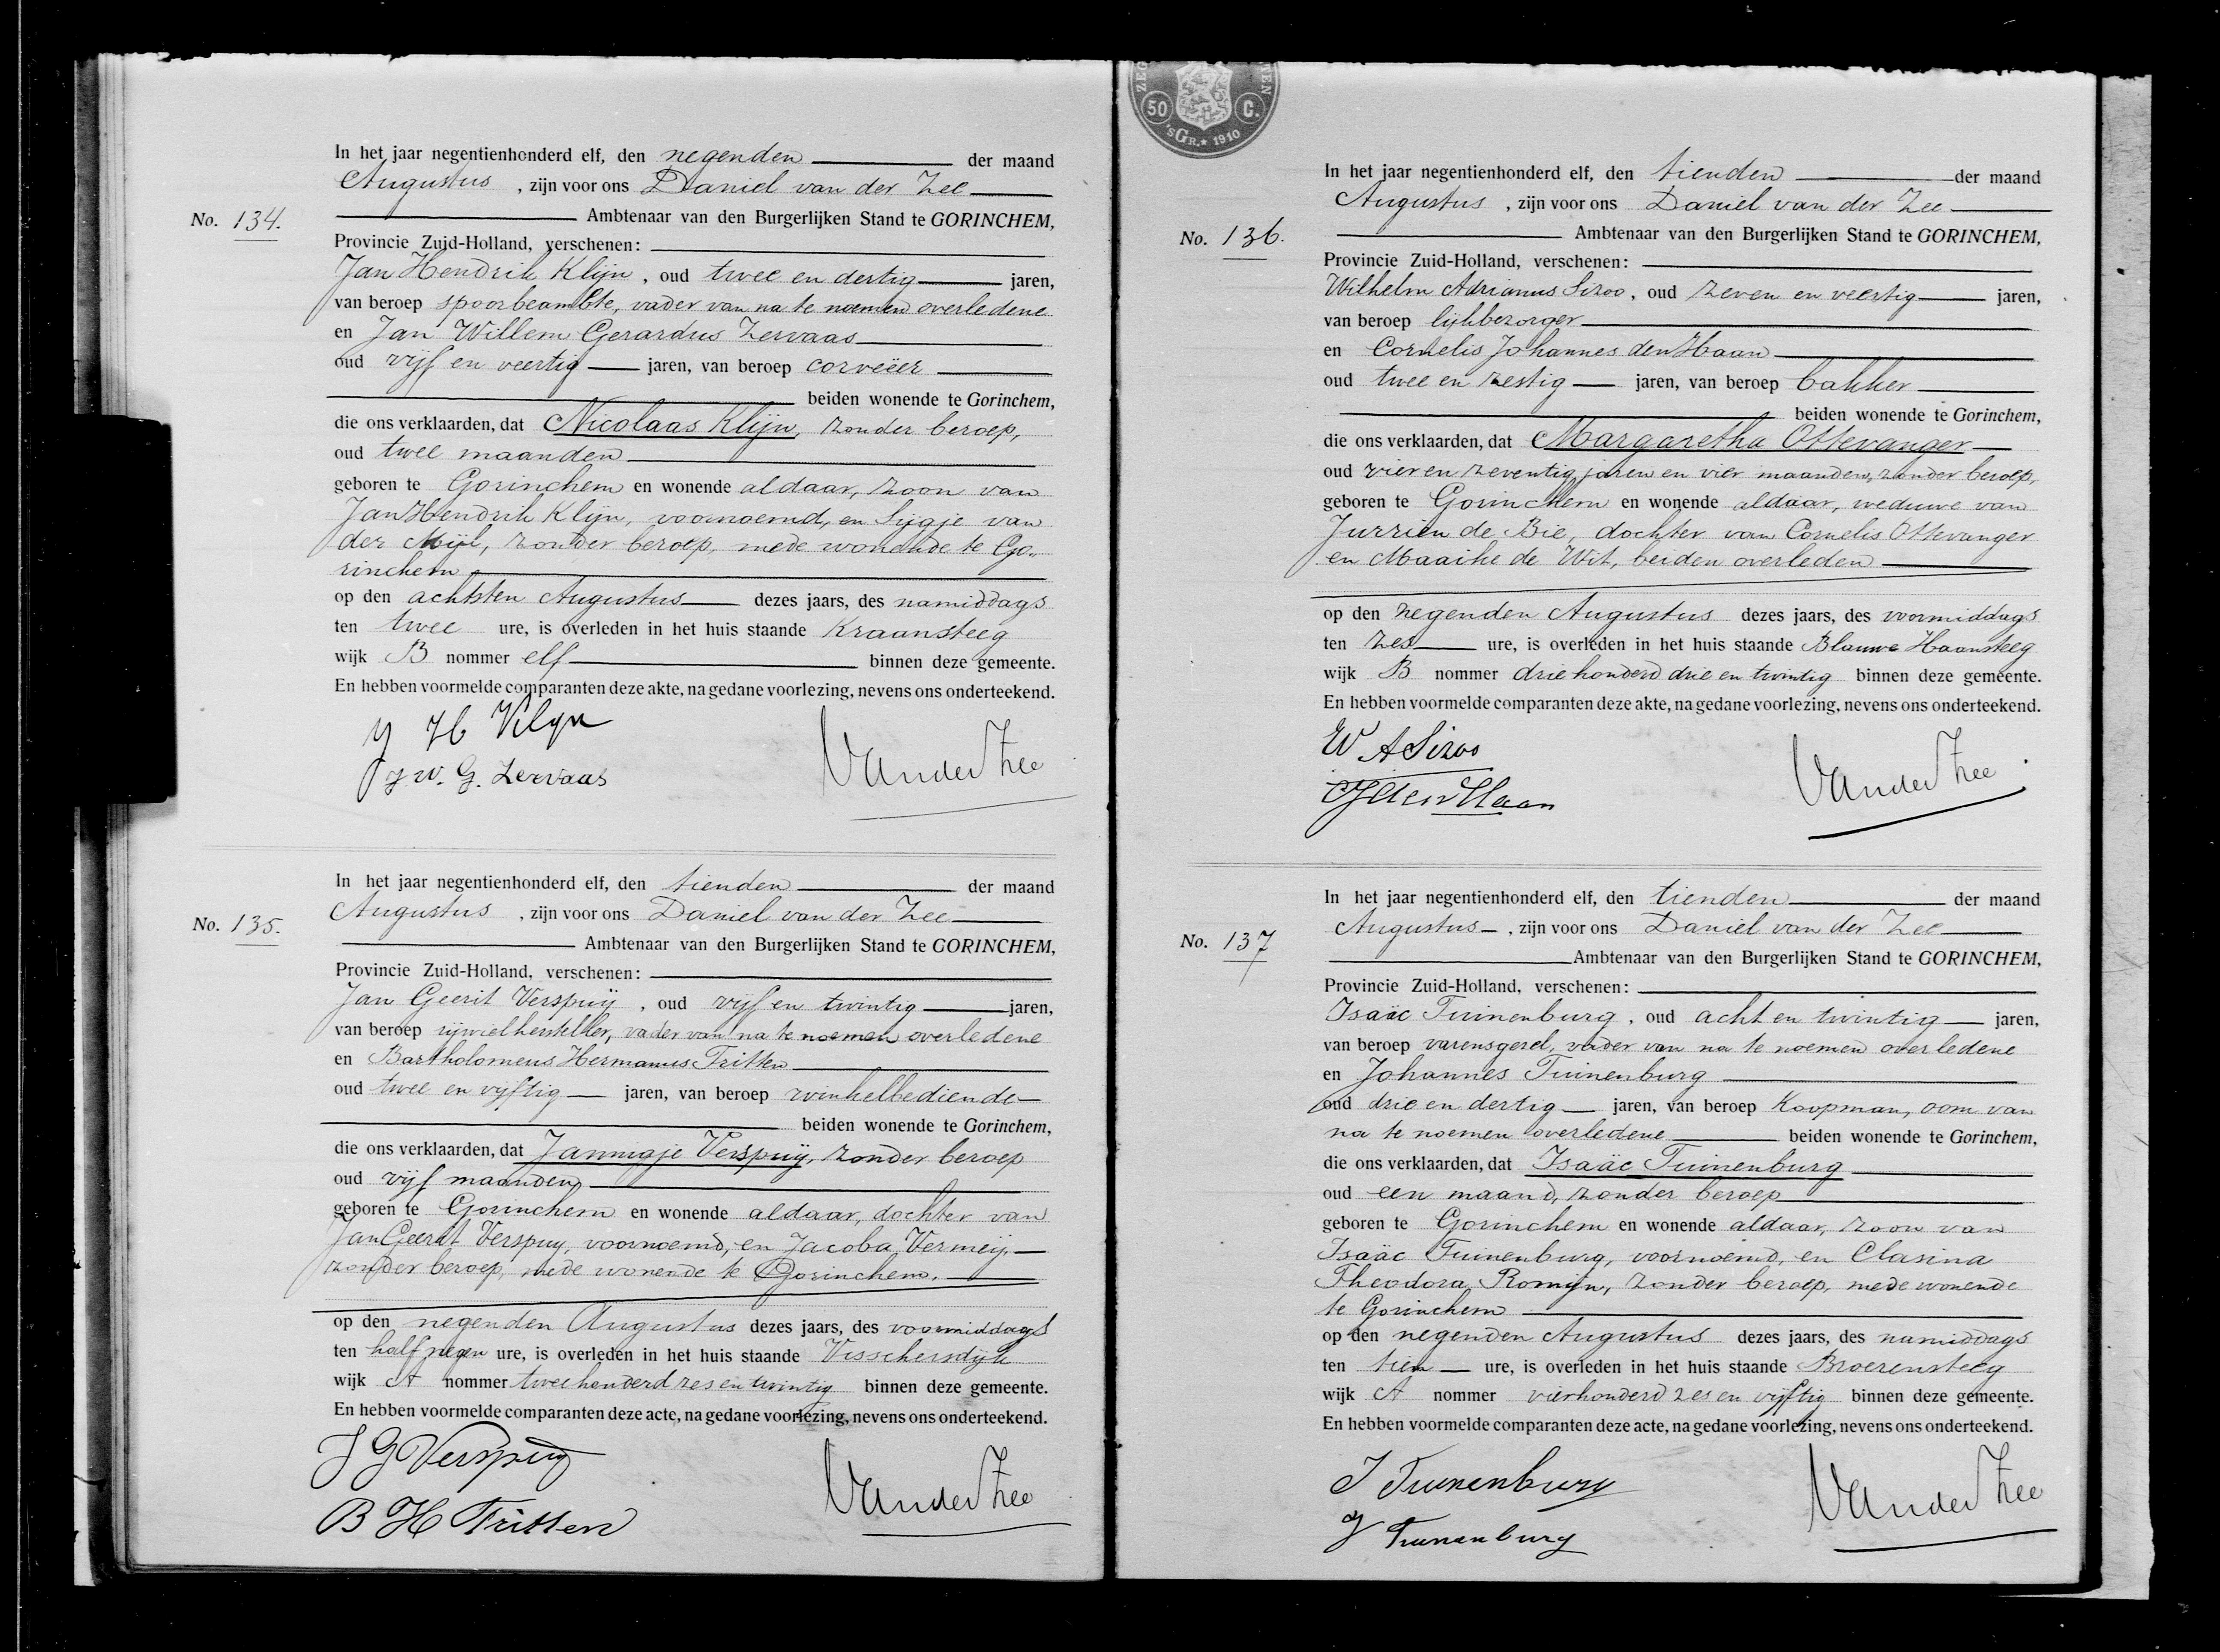 In het jaar negentienhonderd elf, den negenden der maand
Augustus, zijn voor ons Daniel van der Zee
No. 134.
Ambtenaar van den Burgerlijken Stand te GORINCHEM,
Provincie Zuid-Holland, verschenen:
Jan Hendrik Klijn, oud twee en dertig jaren,
van beroep spoorbeambte, vader van na te noemen overledene
en Jan Willem Gerardus Zervaas
oud vijf en veertig jaren, van beroep corveëer
beiden wonende te Gorinchem,
die ons verklaarden, dat Nicolaas Klijn, zonder beroep,
oud twee maanden
geboren te Gorinchem en wonende aldaar, zoon van
Jan Hendrik Klijn, voornoemd, en Sijgje van
der Mijl, zonder beroep, mede wonende te Go-
rinchem
op den achtsten Augustus dezes jaars, des namiddags
ten twee ure, is overleden in het huis staande Kraansteeg
wijk B nommer elf binnen deze gemeente.
En hebben voormelde comparanten deze akte, na gedane voorlezing, nevens ons onderteekend.
J H Klijn
J. W. G. Zervaas
VanderZee
In het jaar negentienhonderd elf, den tienden der maand
Augustus, zijn voor ons Daniel van der Zee
No. 135.
Ambtenaar van den Burgerlijken Stand te GORINCHEM,
Provincie Zuid-Holland, verschenen:
Jan Geerit Verspuij, oud vijf en twintig jaren,
van beroep rijwielhersteller, vader van na te noemen overledene
en Bartholomeus Hermanus Fritten
oud twee en vijftig jaren, van beroep winkelbediende
beiden wonende te Gorinchem,
die ons verklaarden, dat Jannigje Verspuij, zonder beroep
oud vijf maanden
geboren te Gorinchem en wonende aldaar, dochter van
Jan Geerit Verspuy, voornoemd, en Jacoba Vermeij,
zonder beroep, mede wonende te Gorinchem.
op den negenden Augustus dezes jaars, des voormiddags
ten half negen ure, is overleden in het huis staande Visschersdijk
wijk A nommer tweehonderd zes en twintig binnen deze gemeente.
En hebben voormelde comparanten deze acte, na gedane voorlezing, nevens ons onderteekend.
J G Verspuij
B H Fritten
VanderZee
ZEG
MEN
50 C.
'sGR. 1910
In het jaar negentienhonderd elf, den tienden der maand
Augustus, zijn voor ons Daniel van der Zee
No. 136.
Ambtenaar van den Burgerlijken Stand te GORINCHEM,
Provincie Zuid-Holland, verschenen:
Wilhelm Adrianus Sizoo, oud zeven en veertig jaren,
van beroep lijkbezorger
en Cornelis Johannes den Haan
oud twee en zestig jaren, van beroep bakker
beiden wonende te Gorinchem,
die ons verklaarden, dat Margaretha Ottevanger
oud vier en zeventig jaren en vier maanden, zonder beroep,
geboren te Gorinchem en wonende aldaar, weduwe van
Jurriën de Bie, dochter van Cornelis Ottevanger
en Maaike de Wit, beiden overleden
op den negenden Augustus dezes jaars, des voormiddags
ten zes ure, is overleden in het huis staande Blauwe Haansteeg
wijk B nommer driehonderd drie en twintig binnen deze gemeente.
En hebben voormelde comparanten deze akte, na gedane voorlezing, nevens ons onderteekend.
W A Sizoo
CJ den Haan
VanderZee
In het jaar negentienhonderd elf, den tienden der maand
Augustus, zijn voor ons Daniel van der Zee
No. 137
Ambtenaar van den Burgerlijken Stand te GORINCHEM,
Provincie Zuid-Holland, verschenen:
Isaäc Tuinenburg, oud acht en twintig jaren,
van beroep varensgezel, vader van na te noemen overledene
en Johannes Tuinenburg
oud drie en dertig jaren, van beroep Koopman, oom van
na te noemen overledene beiden wonende te Gorinchem,
die ons verklaarden, dat Isaäc Tuinenburg
oud een maand, zonder beroep
geboren te Gorinchem en wonende aldaar, zoon van
Isaäc Tuinenburg, voornoemd, en Clasina
Theodora Romijn, zonder beroep, mede wonende
te Gorinchem
op den negenden Augustus dezes jaars, des namiddags
ten tien ure, is overleden in het huis staande Broerensteeg
wijk A nommer vierhonderd zes en vijftig binnen deze gemeente.
En hebben voormelde comparanten deze acte, na gedane voorlezing, nevens ons onderteekend.
I Tuinenburg
J Tuinenburg
VanderZee